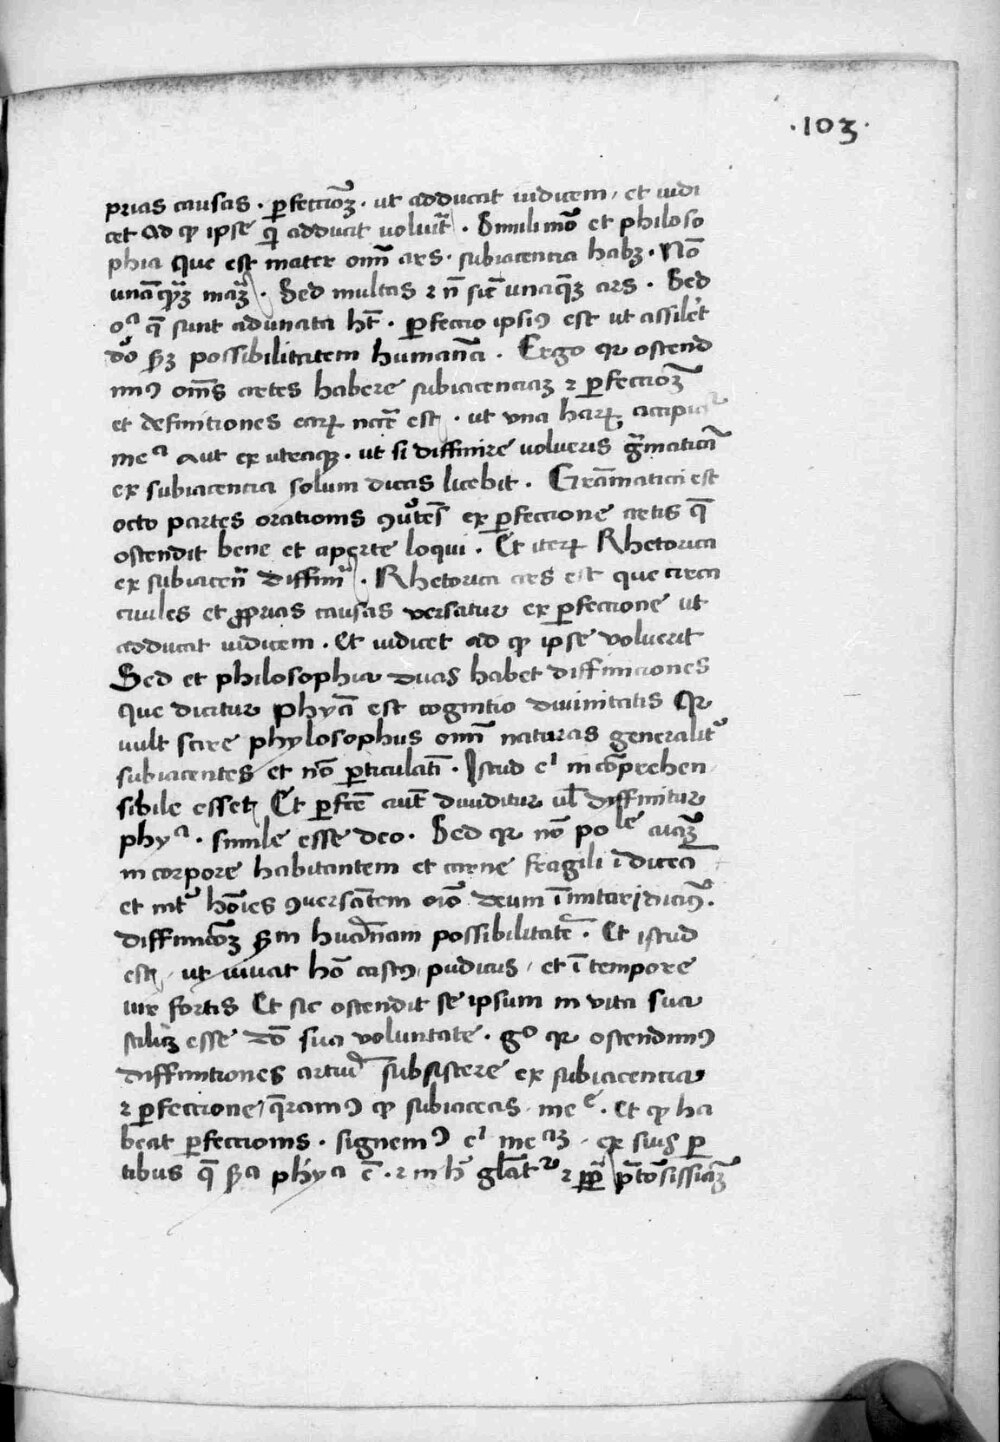 ·103·
prias causas · ꝑfectioꝫ · ut adducat iudicem / et iudi
cet ad qd ipse qͥ adducit voluit̃ · Simili mõ et philoso
phia que est mater oniũ ars · subiacentia habꝫ · Nõ
unã qͣꝫ maͣꝫ · Sed multas ⁊ nõ sic̃ unaqͣꝫ ars · Sed
oͣ q̃ sunt adunata ht̃ · ꝑfectio ipsiꝰ est ut assilet̃
dõ ẜꝫ possibilitatem humanã · Ergo qꝛ ostend
imꝰ om̃s artes habere subiacentiaꝫ ⁊ ꝑfectioꝫ
et definitiones earꝝ nãr est · ut una harꝝ accipia
meͣ aut ex utraqꝫ · ut si diffinire volueris gͣmaticã
ex subiacentia solum dicas licebit · Grãmatica est
octo partes orationis ꝯũtẽs ex ꝑfectione artis q̃
ostendit bene et aperte loqui · Et iterꝝ Rhetorica
ex subiacen̄ diffini͠ · Rhetorica ars est que circa
ciuiles et ꝓprias causas versatur ex ꝑfectione ut
adducat iudicem · Et iudicet ad qd ipse voluerit
Sed et philosophia duas habet diffiniciones
que dicitur phycã est cognitio divinitatis Qꝛ
vult scire phylosophus oniũ naturas generalit᷑
subiacentes et nõ ꝑticulatĩ · Istud eͥ incõprehen
sibile esset Et ꝑfcẽ aut̃ diuiditur ul̃ diffinitur
phyͣ · simile esse deo · Sed qꝛ nõ pole aĩaꝫ
in corpore habitantem et carne fragili ĩ ductã
et int᷑ hoĩes ꝯuersãtem oĩo deum ĩmitari dicimꝰ.
diffinicõꝫ ẜm humãnam possibilitatẽ · Et istud
est / ut vivat hõ castus / pudicus / et ĩ tempore
vir fortis Et sic ostendit se ipsum in vita sua
silẽꝫ esse dõ sua voluntate · gͦ qꝛ ostendimꝰ
diffinitiones artiũ subsistere ex subiacentia
⁊ ꝑfectione / q̃ramꝰ qd subiaceas · meͤ · Et qd ha
beat ꝑfectionis · signemꝰ eͥ meaꝫ · ex suis ꝑ
tibus q̃ ẜa phyͣca ẽ · ⁊ in hͦ gl̃at᷑ ⁊ ꝑp̃ p̃tõsissiaꝫ